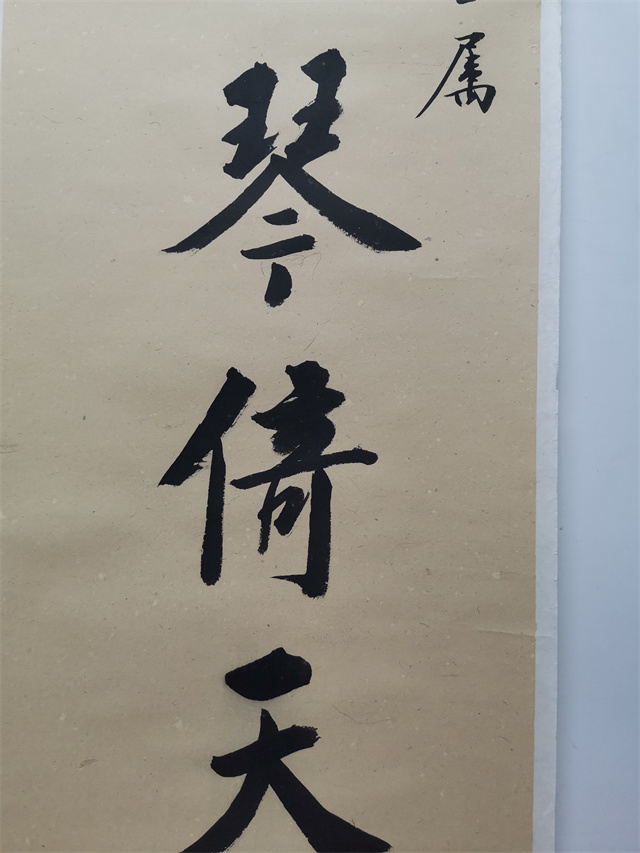 属
琴倚天